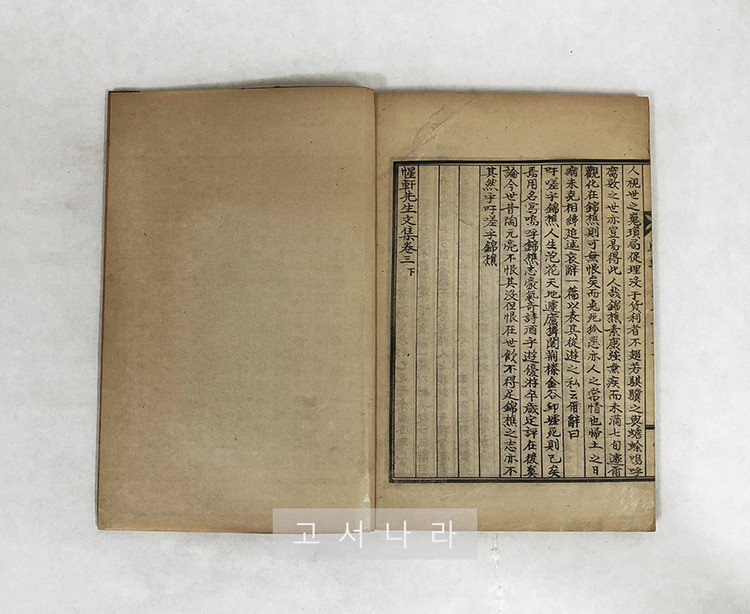 人視世之嵬瑣局促理沒于貨利者不翅若騏驥之與蟾蜍嗚呼
腐敗之世亦豈易得此人哉錦樵素康強無疾而未滿七旬遽爾
觀化在錦樵則可無恨矣而兎死狐悲亦人之常情也歸土之日
病未克相紼追述哀辭一篇以表其從遊之私云爾辭曰
吁嗟乎錦樵人生泡花天地蘧廬閣荊榛金谷邱墟死則已矣
焉用名嗚呼錦樵志豪氣奇詩酒乎遊優游卒歲定評在後奚
論今世昔陶元亮不恨其沒但恨在世飮不得足錦樵之志亦不
其然乎吁嗟乎錦樵
惺軒先生文集卷三 下
고서나라